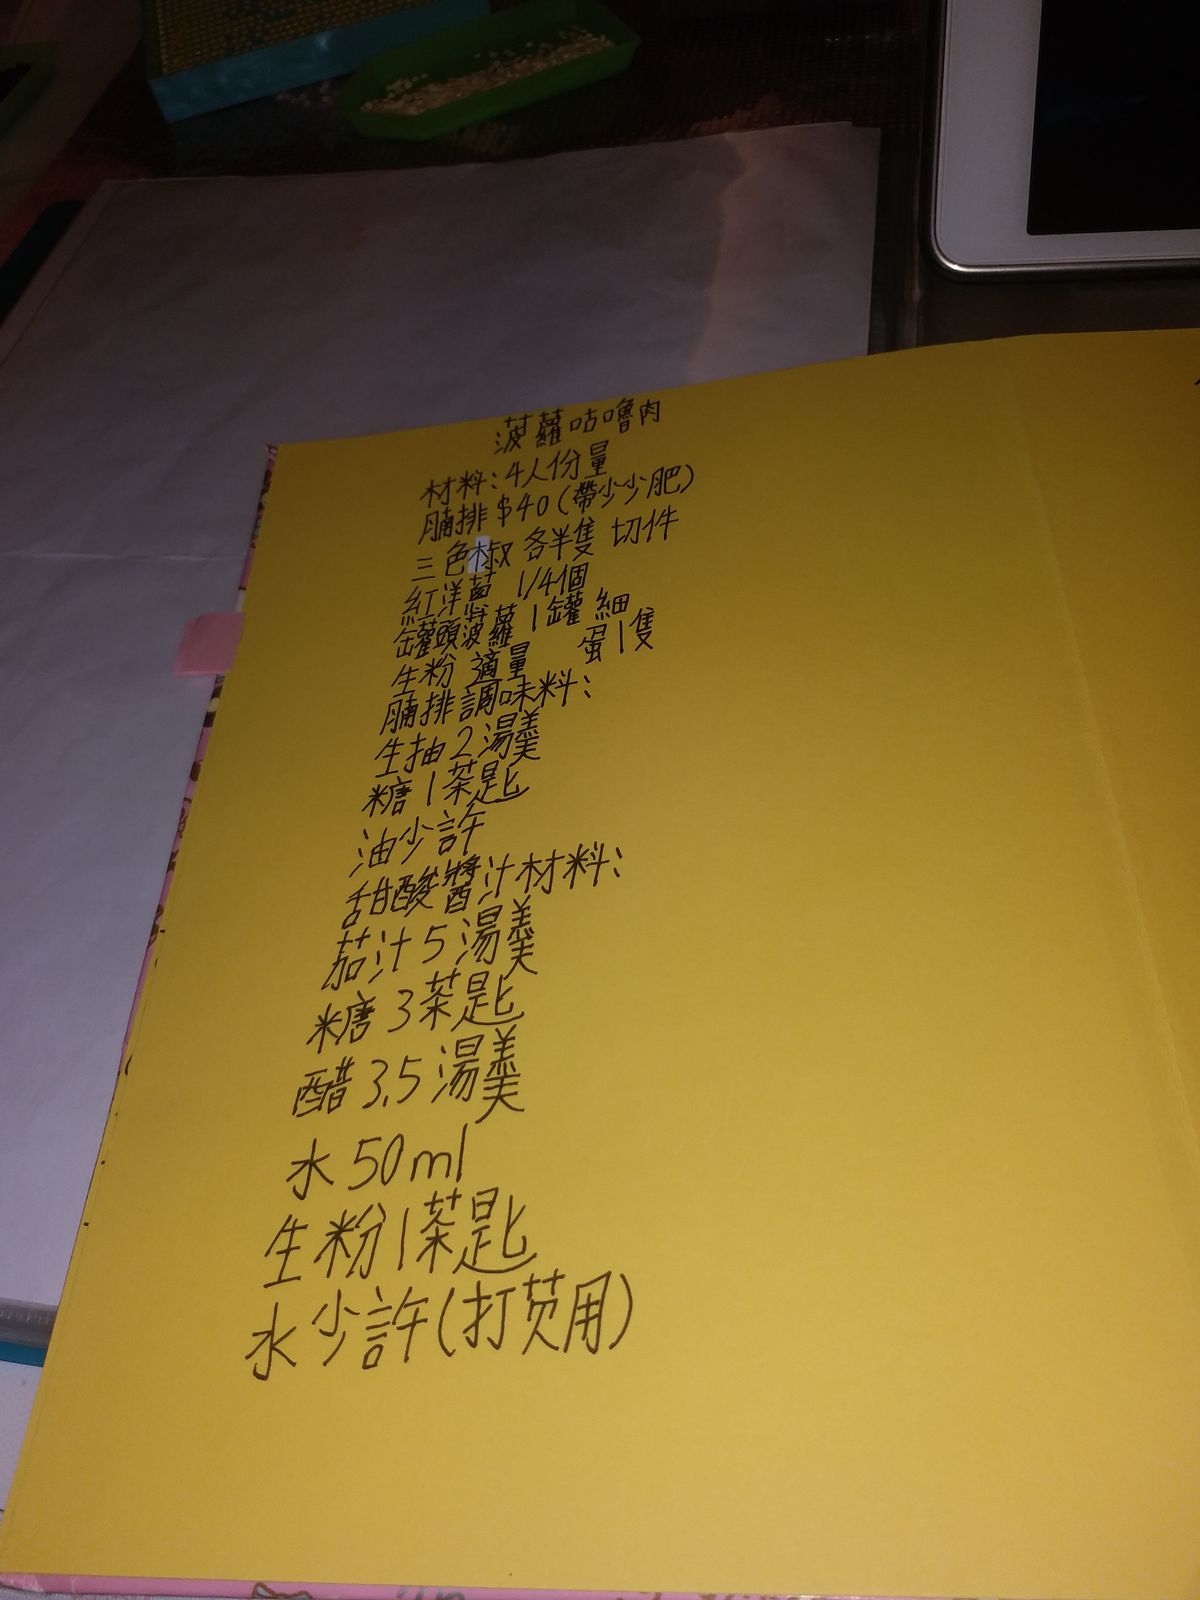 菠蘿咕嚕肉
材料:4人份量
腩排$40(帶少少肥)
三色椒 各半隻 切件
紅洋葱 1/4個
罐頭菠蘿 1罐 細
生粉 適量 蛋1隻
腩排調味料:
生抽2湯羹
糖1茶匙
油少許
甜酸醬汁材料:
茄汁5湯羹
糖3茶匙
醋3.5湯羹
水50ml
生粉1茶匙
水少許(打芡用)